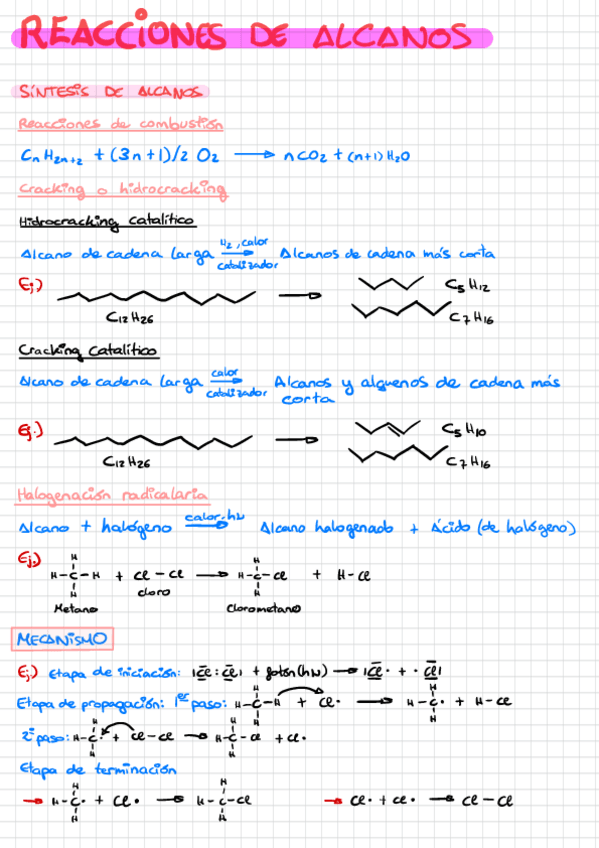 REACCIONES DE ALCANOS
SÍNTESIS DE ALCANOS
Reacciones de combustión
CnH2n+2 + (3n+1)/2 O2 → nCO2 + (n+1) H2O
Cracking o hidrocracking
Hidrocracking catalítico
Alcano de cadena larga H2, calor → catalizador Alcanos de cadena más corta
Ej:) → C5H12
C12H26 C7H16
Cracking catalítico
Alcano de cadena larga calor → catalizador Alcanos y alquenos de cadena más
corta
Ej:) → C5H10
C12H26 C7H16
Halogenación radicalaria
Alcano + halógeno calor, hν → Alcano halogenado + Ácido (de halógeno)
Ej:) H-C-H + Cl-Cl → H-C-Cl + H-Cl
cloro
Metano Clorometano
MECANISMO
Ej:) Etapa de iniciación: |Cl:Cl| + fotón(hν) → |Cl· + ·Cl|
Etapa de propagación: 1er paso: H-C-H + Cl· → H-C· + H-Cl
2º paso: H-C· + Cl-Cl → H-C-Cl + Cl·
Etapa de terminación
→ H-C· + Cl· → H-C-Cl → Cl· + Cl· → Cl-Cl